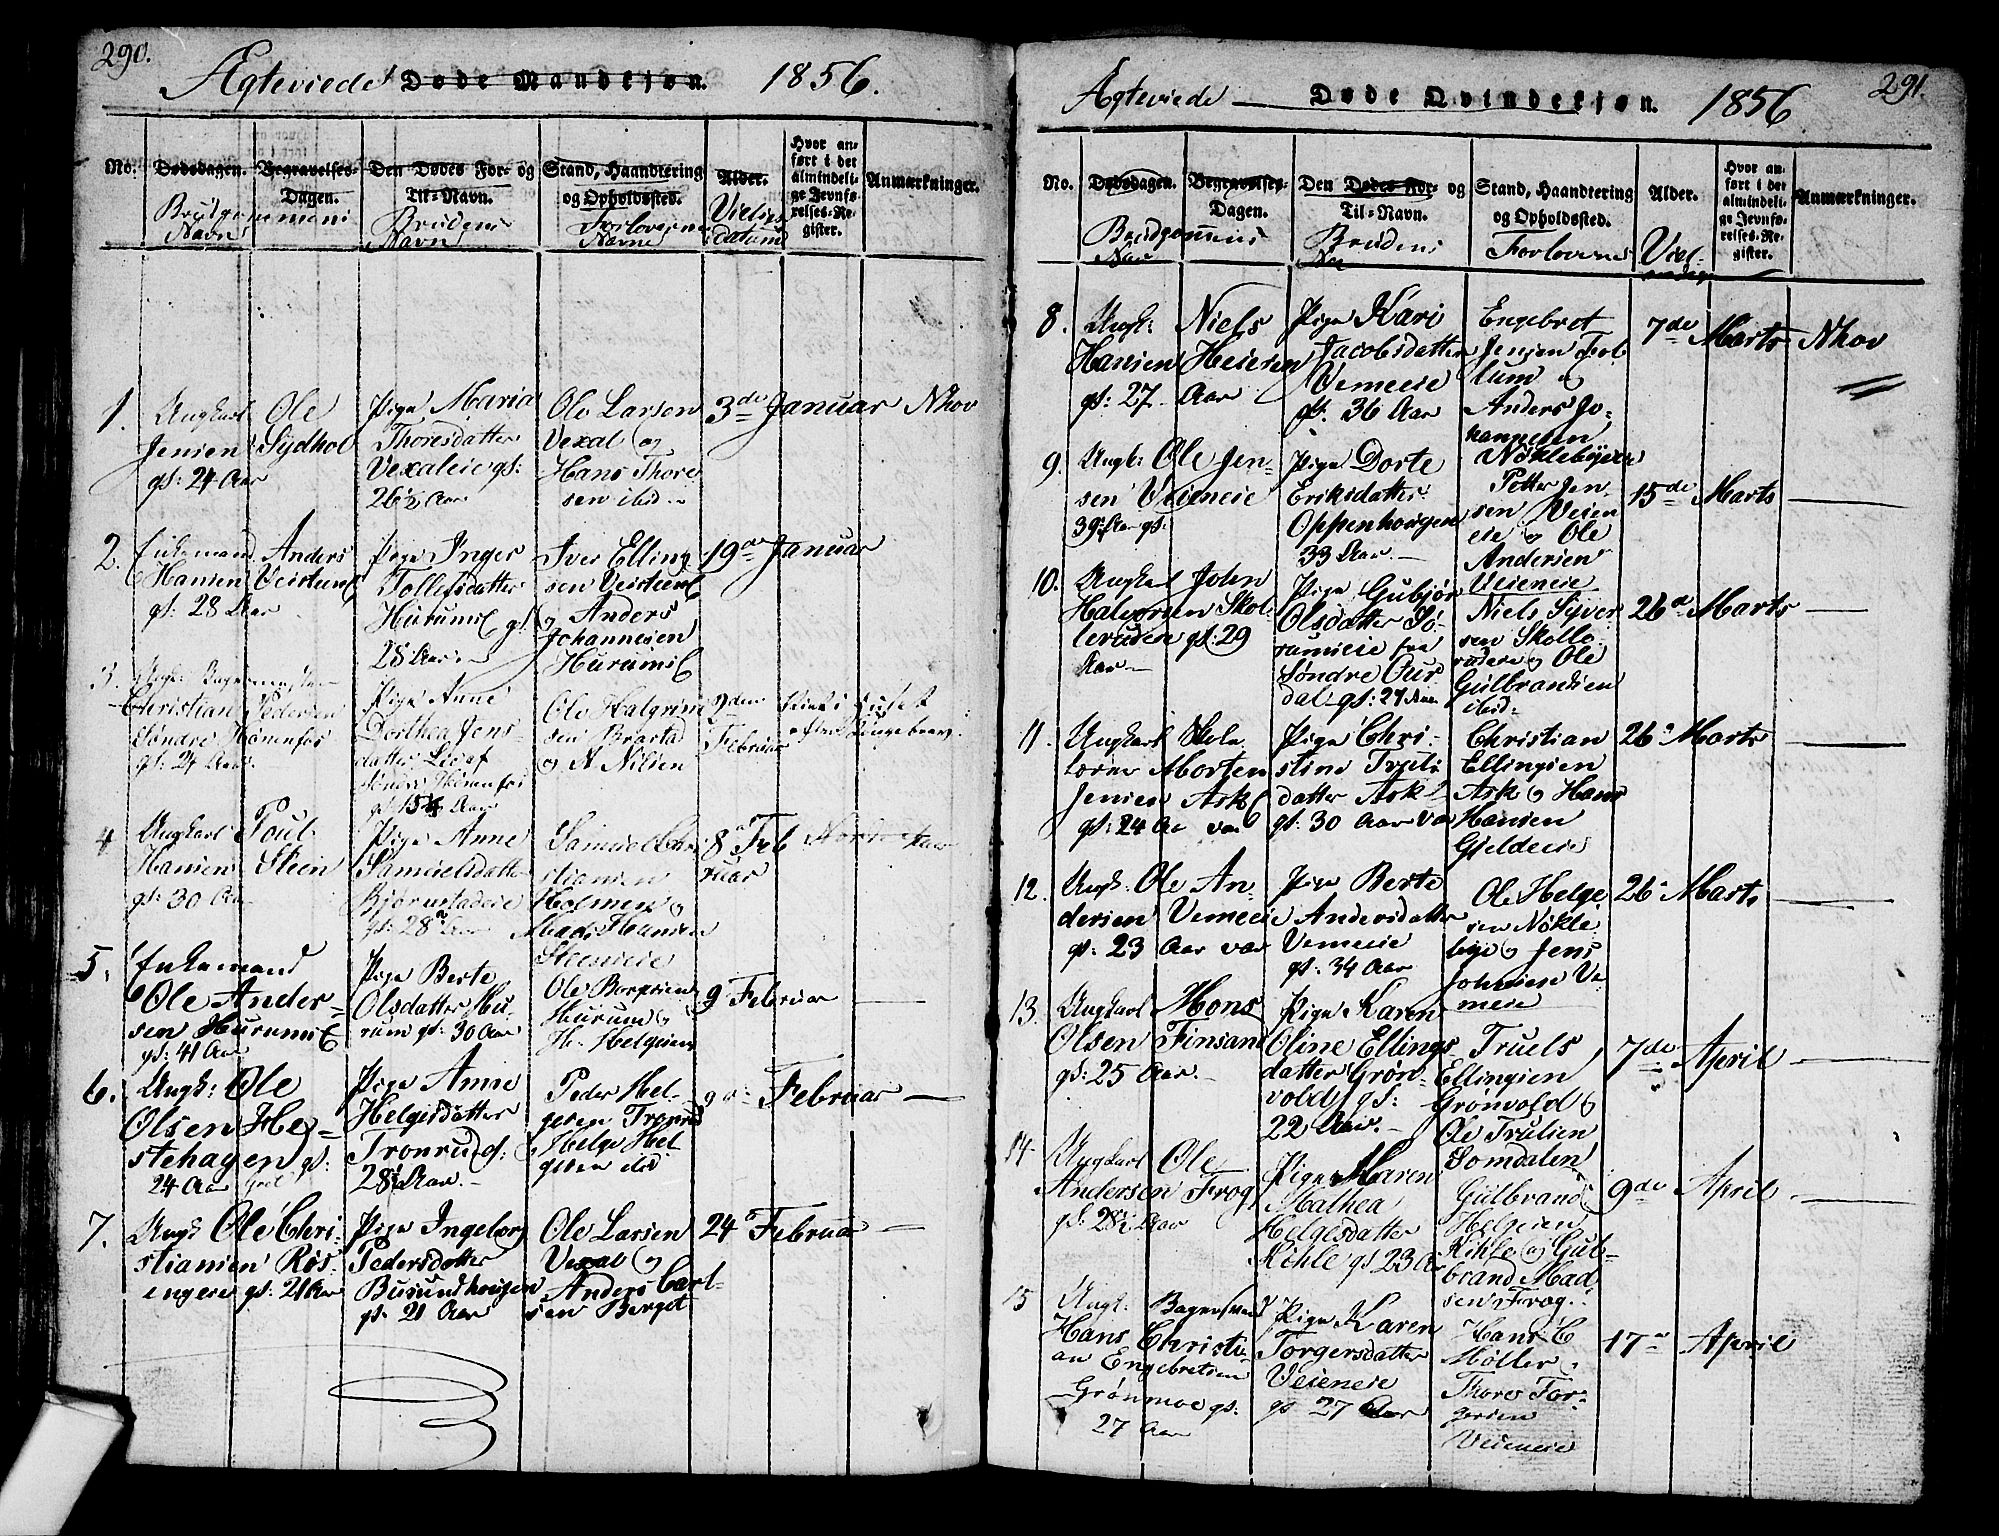 290.
Ægteviede Døde Mandkjøn. 1856.
No.
Dødsdagen.
Begravelses-
Dagen.
Den Dødes For- og
Til-Navn.
Stand, Haandtering
og Opholdssted.
Alder.
Hvor an-
ført i det
almindeli-
ge Jevnfø-
relses-Re-
gister.
Anmærkninger.
Brudgommens
Navn
Brudens
Navn
Forlovernes
Navne
Vielses
datum
1.
Ungkarl Ole
Jensen Sydhol
gl: 24 Aar
Pige Maria
Thoresdatter
Vexaleie gl:
26½ Aar
Ole Larsen
Vexal og
Hans Thore
sen ibd.
3de Januar Nhov
2.
Enkemand Anders
Hansen
gl: 28 Aar
Pige Inger
Tollefsdatter
gl:
28 Aar.
Iver Elling
sen
og Anders
Johannesen
19de Januar
3.
Ungk: Bagermester
Christian Pedersen
Søndre Hønenfos
gl: 24 Aar
Pige Anne
Dorthea Jens-
datter
Søndre Hønenfos
gl: Aar
Ole Halgrim
sen
og A Nilsen
Februar
4
Ungkarl Poul
Hansen Steen
gl: 30 Aar
Pige Anne
Samuelsdatter
Bjørnstadeie
gl: 28 Aar
Samuel Chri
stiansen
Holmen og
Mads Hansen
Steenseie
8 Feb
ruar
5.
Enkemand
Ole Ander-
sen
gl: 41 Aar
Pige Berte
Olsdatter Hu-
rum gl: 30 Aar
Ole
Hurum og
H. Helgesen
9 Februar
6.
Ungk: Ole
Olsen He-
stehagen gl:
24 Aar
Pige Anne
Helgesdatter
Tronrud gl:
28½ Aar.
Peder Hel-
gesen Tronrud
Helge Hel
gesen ibd
9de Februar
7.
Ungk Ole Chri-
stiansen Røs-
engeie gl: 21 Aar
Pige Ingeborg
Pedersdatter
Busundhougen
gl: 21 Aar
Ole Larsen
Vexal og
Anders Carl-
sen Berget
24 Februar
291.
Ægteviede Døde Qvindekjøn. 1856
No.
Dødsdagen.
Begravelses-
Dagen.
Den Dødes For- og
Til-Navn.
Stand, Haandtering
og Opholdssted.
Alder.
Hvor an-
ført i det
almindeli-
ge Jevnfø-
relses-Re-
gister.
Anmærkninger.
Brudgommens
Nav
Brudens
Forlovernes
8.
Ungk: Niels
Hansen Heiesen
gl: 27 Aar
Pige Kari
Jacobsdatter
Vemeeie
gl: 36 Aar
Engebret
Jensen Fol
lum og
Anders Jo-
hannesen
Nøklebyeie
7de Marts Nhov
9.
Ungk: Ole Jen-
sen Veieneie
39½ Aar gl:
Pige Dorte
Eriksdatter
Oppenhougen
33 Aar.
Petter Jen
sen Veien
eie og Ole
Andersen
Veieneie
15de Marts
10.
Ungkarl John
Halvorsen Skol
leruden gl: 29
Aar
Pige Gubjør
Olsdatter Sø-
rumseie fra
Søndre Our
dal gl: 27 Aar
Niels Syver
sen Skolle
rudeie og Ole
Gulbrandsen
ibid:
26de Marts
11.
Ungkarl Skole
lærer Morten
Jensen Ask
gl: 24 Aar
Pige Chri-
stine Truls
datter Ask
gl: 30 Aar
Christian
Ellingsen
Ask og Hans
Hansen
Gjeldeeie
26 Marts
12.
Ungk: Ole An-
dersen Vemeeie
gl: 23 Aar
Pige Berte
Andersdatter
Vemeeie
gl: 34 Aar
Ole Helge
sen Nøkle
bye og Jens
Johnsen Ve
meeie
26 Marts
13.
Ungkarl Hans
Olsen Finsand
gl: 25 Aar.
Pige Karen
Oline Ellings
datter Grøn-
vold gl:
22 Aar.
Truels
Ellingsen
Grønvold og
Ole Trulsen
Somdalen
7de April
14.
Ungkarl Ole
Andersen Frog
gl: 28½ Aar
Pige Maren
Mathea
Helgesdatter
Kihle gl 23 Aar
Gulbrand
Helgesen
Kihle og Gul-
brand Mad
sen Frog.
9de April
15
Ungk: Bagersvend
Hans Christi-
an Engebretsen
Grønmoe gl:
27 Aar
Pige Karen
Torgersdatter
Veieneie
gl 27 Aar
Hans C
Møller.
Thore Tor-
gersen
Veieneie
17 April